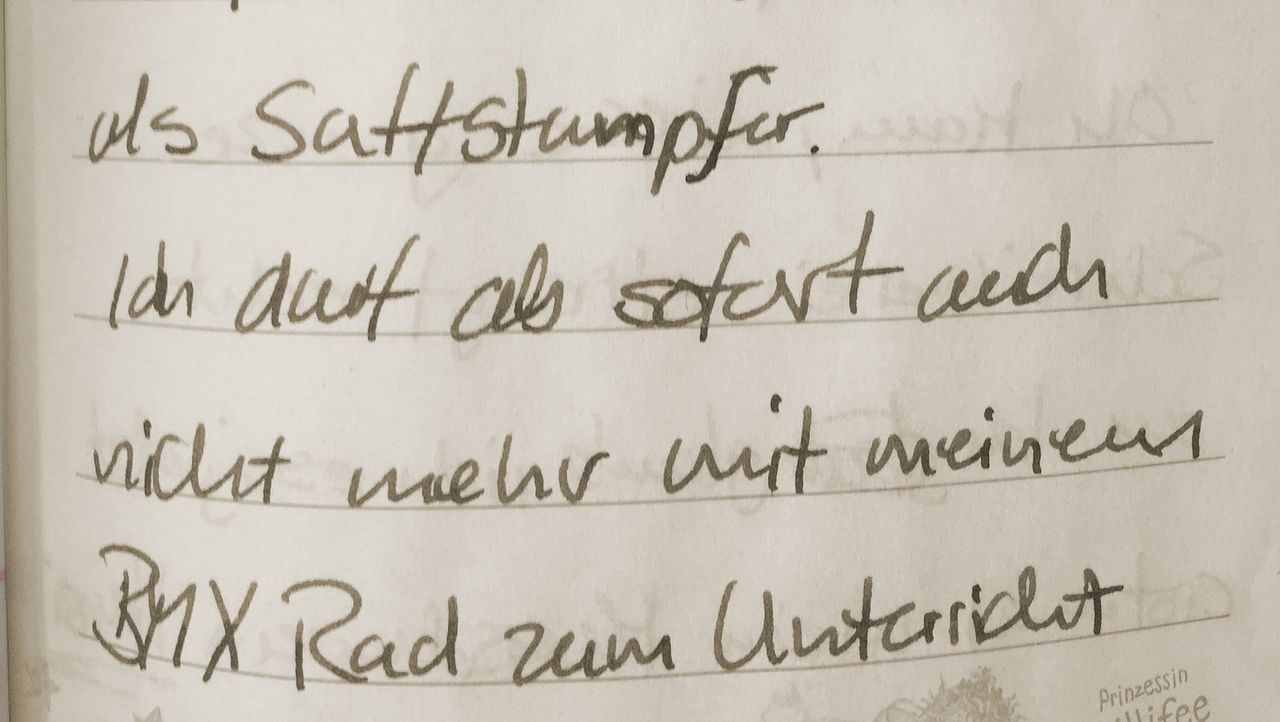 als Saftstampfer.
Ich darf ab sofort auch
nicht mehr mit meinem
BMX Rad zum Unterricht
Prinzessin
llifee